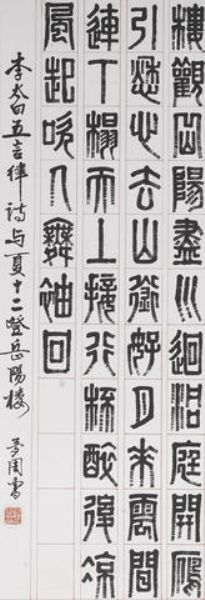 樓觀岳陽盡川迥洞庭開雁
引愁心去山銜好月來雲間
連下榻天上接行杯醉後涼
風起吹人舞袖回
李太白五言律詩与夏十二登岳陽楼
周書